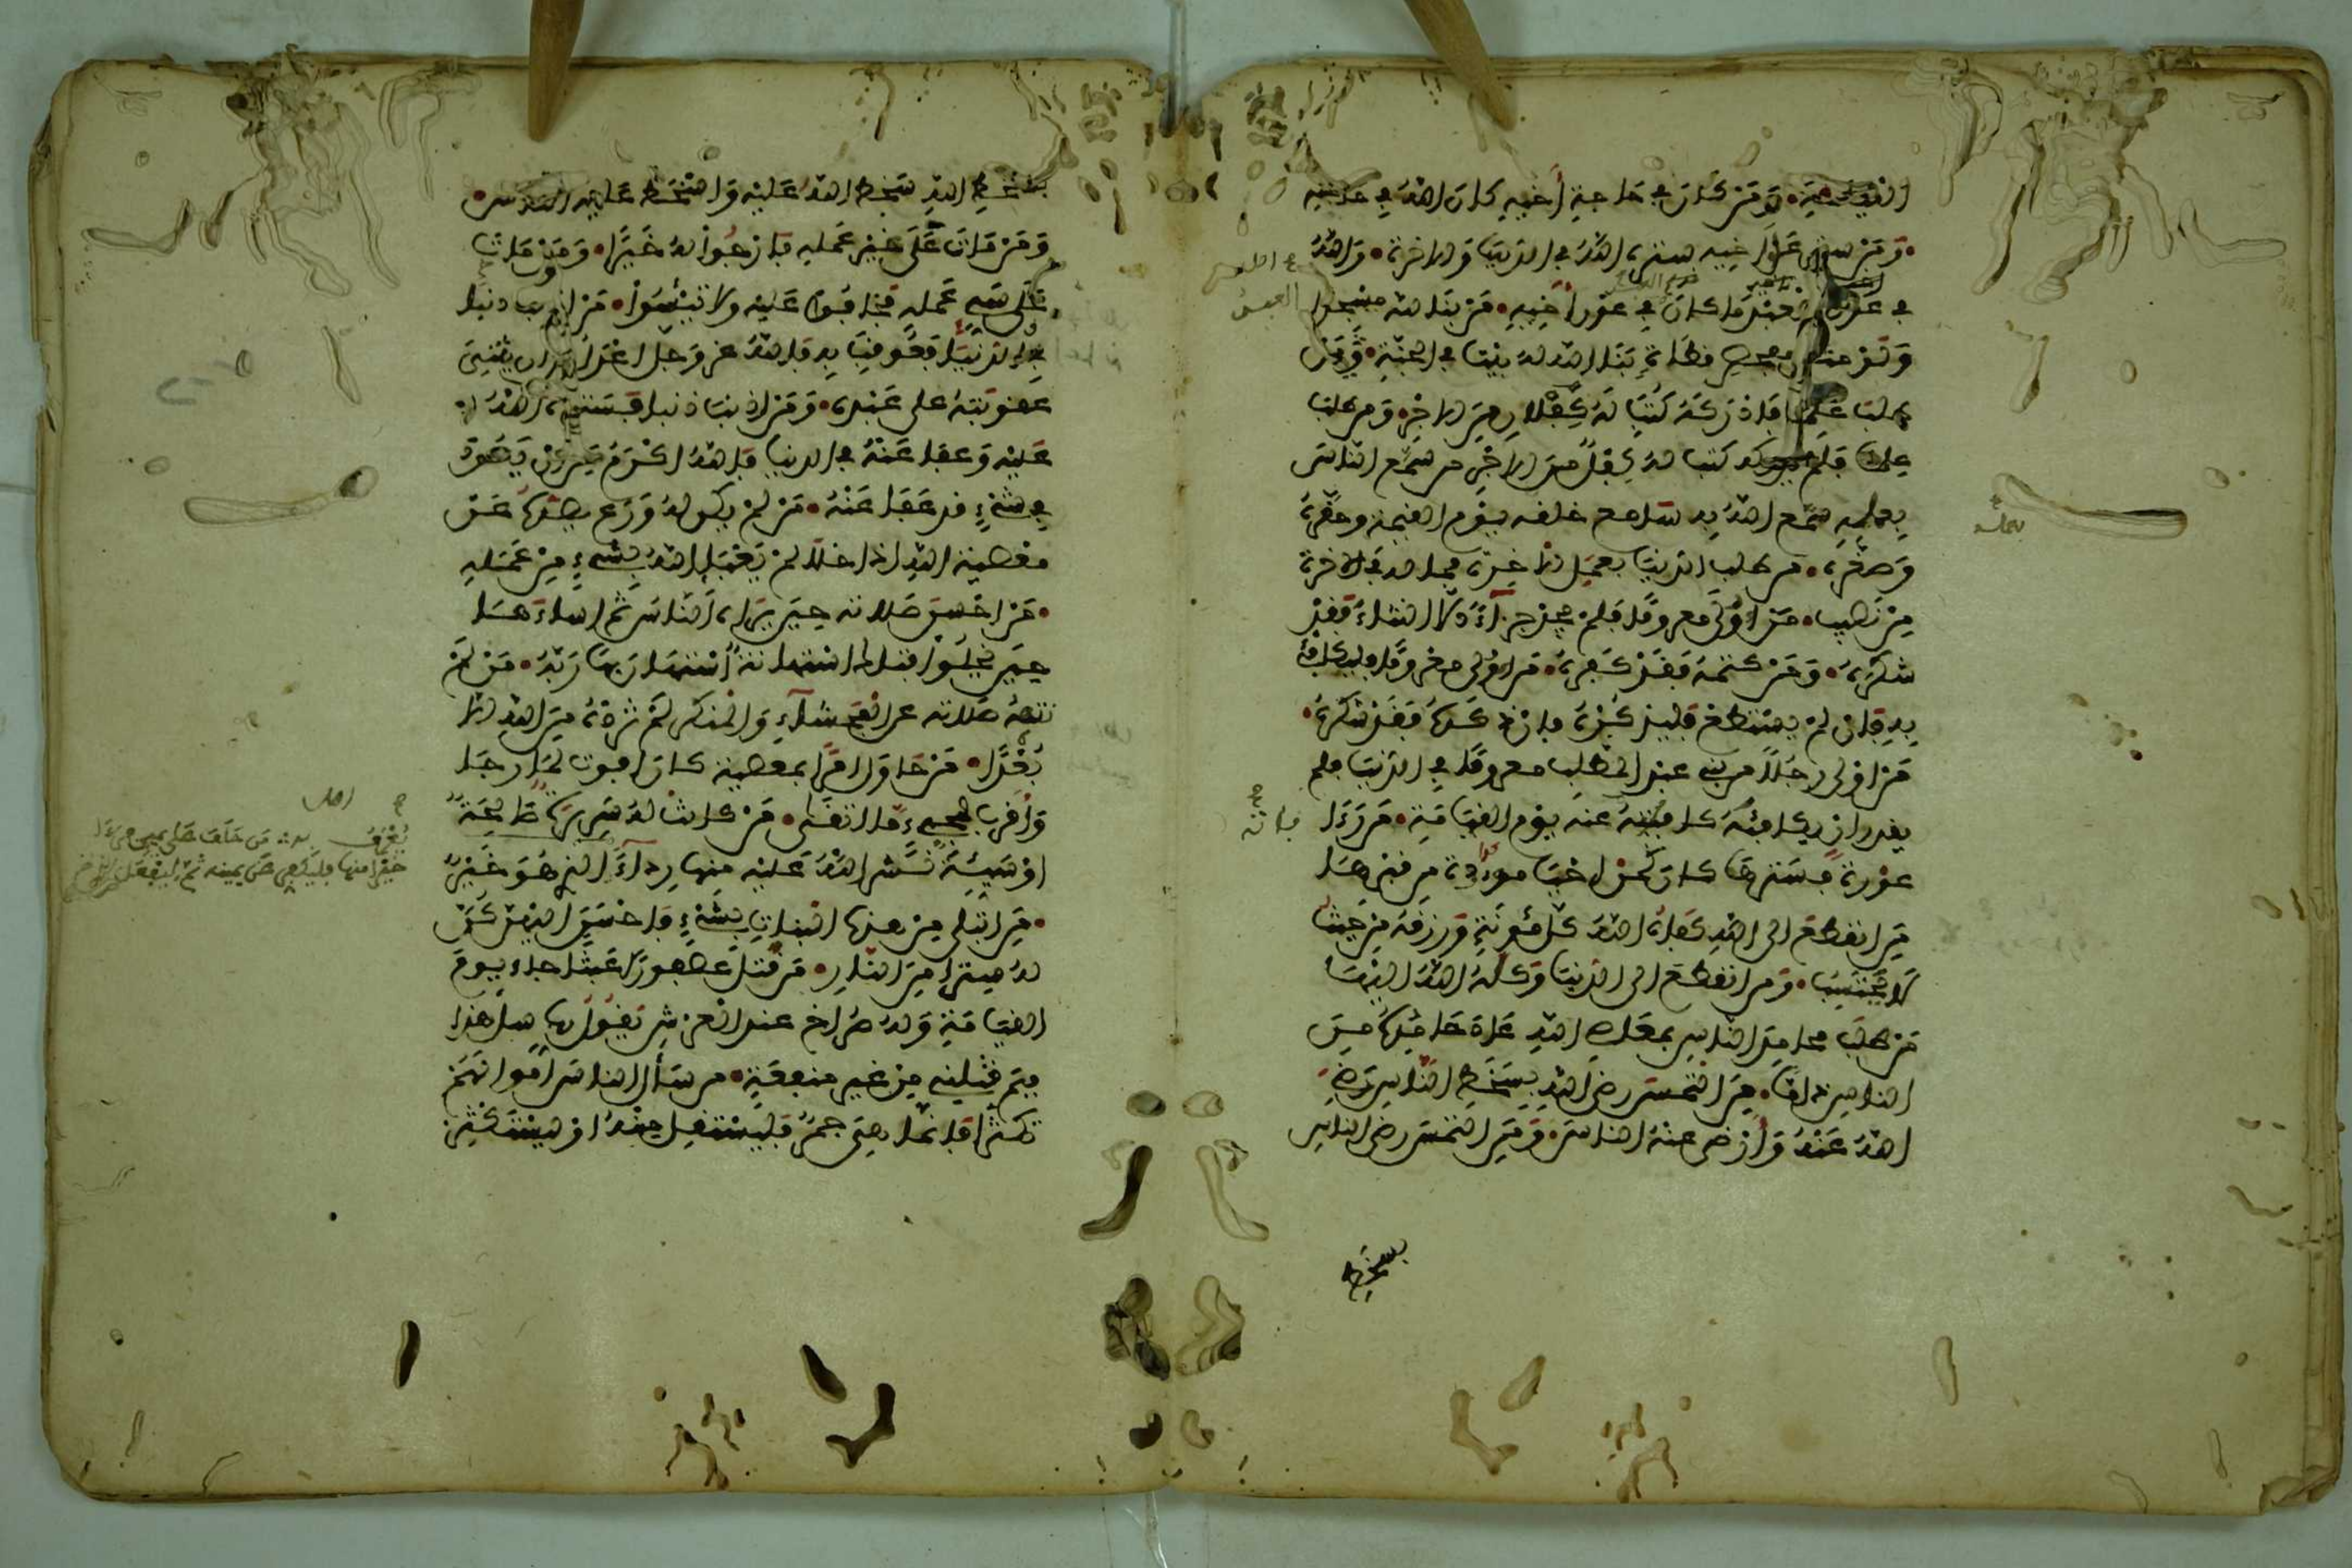 القيامة • ومن كان في حاجة أخيه كان الله في حاجته
• ومن ستر على أخيه ستره الله في الدنيا والاخرة • والله
في عون العبد ما كان في عون أخيه • من بنا لله مسجدا
ولو مثل مفحص قطاة بنا الله له بيتا في الجنة • ومن
طلب علما فادركه كتب له كفلان من الاجر • ومن طلب
علما فلم يدركه كتب له كفل من الاجر من سمع الناس
بعمله سمع الله به سامع خلقه يوم القيمة وحقره
وصغره • من طلب الدنيا بعمل الآخرة فما له في الآخرة
من نصيب • من أولى معروفا فلم يجد جزآء الا الثناء فقد
شكره • ومن كتمه فقد كفره • من أولى معروفا فليكافئ
به فإن لم يستطع فليذكره فإن ذكره فقد شكره •
من اولى رجلا من بني عبد المطلب معروفا في الدنيا فلم
يقدر ان يكافئه كافيته عنه يوم القيامة • من رءا
عورة فسترها كان كمن احيا موءودة من قبرها
من انقطع الى الله كفاه الله كل مئونة ورزقه من حيث
لا يحتسب • ومن انقطع الى الدنيا وكله الله اليها
من طلب محامد الناس بمعاصي الله عاد حامده من
الناس ذاما • من التمس رضى الله بسخط الناس رضي
الله عنه وأرضى عنه الناس • ومن التمس رضى الناس
بسخط
عمله
فإنه
بسخط الله سخط الله عليه واسخط عليه الناس •
ومن مات على خير عمله فارجوا له خيرا • ومن مات
على سيء عمله فخافوا عليه ولا تيئسوا • من اذنب ذنبا
في الدنيا فعوقب به فالله عز وجل اعدل من ان يثني
عقوبته على عبده • ومن اذنب ذنبا فستره الله
عليه وعفا عنه في الدنيا فالله اكرم من ان يعود
في شيء قد عفا عنه • من لم يكن له ورع يصده عن
معصية الله اذا خلا لم يعبإ الله بشيء من عمله
• من احسن صلاته حين يراه الناس ثم اساءها
حين يخلوا فتلك استهانة استهان بها ربه • من لم
تنهه صلاته عن الفحشآء والمنكر لم تزده من الله الا
بعدا • من حاول امرا بمعصية كان افوت لما رجا
واقرب لمجيء ما اتقى • من كانت له سريرة صالحة
او سيئة نشر الله عليه منها ردآء
• من ابتلي من هذه البنات بشيء فاحسن اليهن كن
له سترا من النار • من قتل عصفورا عبثا جاء يوم
القيامة وله صراخ عند العرش يقول رب سل هذا
فيم قتلني من غير منفعة • من سأل الناس أموالهم
تكثرا فإنما هي جمر فليستقل منه او ليستكثر
يعرف به من حلف على يمين فرءا
خيرا منها فليكفر عن يمينه ثم ليفعل الذي هو خير